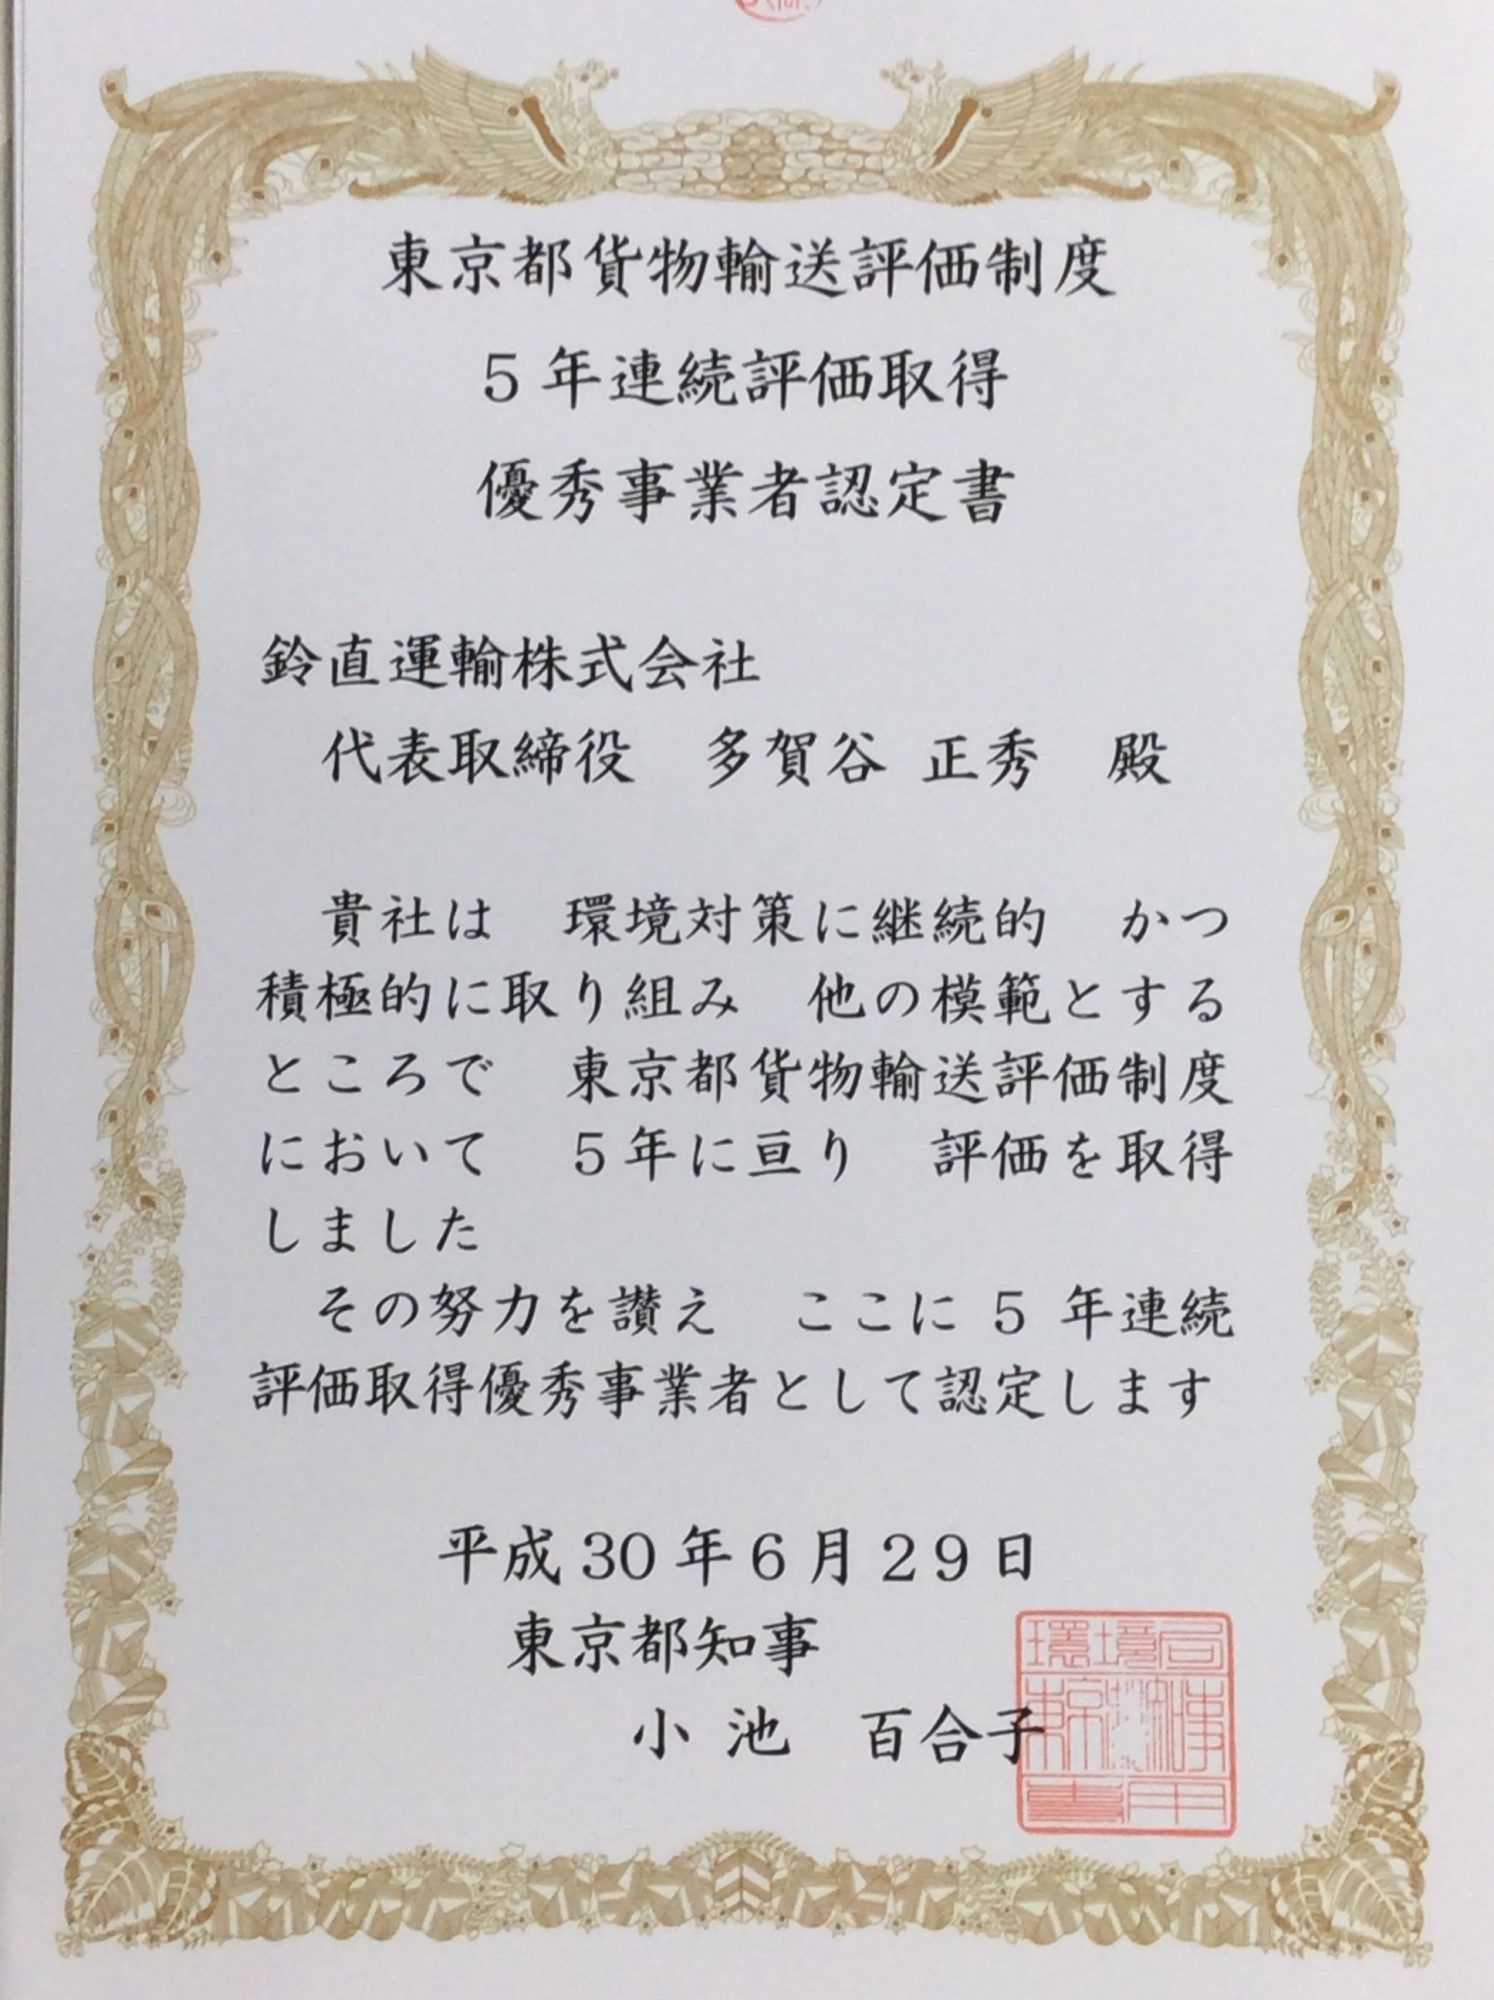 東京都貨物輸送評価制度
5年連続評価取得
優秀事業者認定書
鈴直運輸株式会社
代表取締役　多賀谷 正秀　殿
貴社は　環境対策に継続的　かつ
積極的に取り組み　他の模範とする
ところで　東京都貨物輸送評価制度
において　5年に亘り　評価を取得
しました
その努力を讃え　ここに 5 年連続
評価取得優秀事業者として認定します
平成 30 年 6 月 29 日
東京都知事
小 池　百合子
環境局